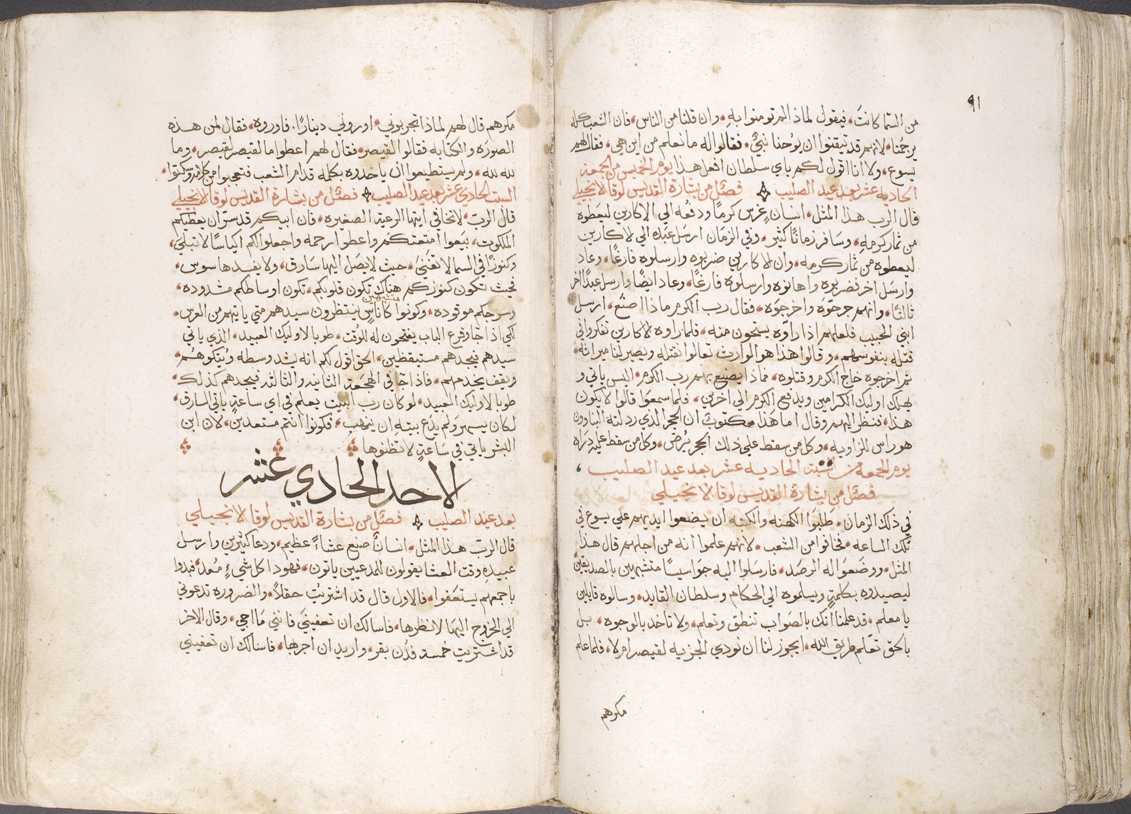 ٩١
من السما كانت، فيقول لماذا لم تومنوا به، وان قلنا من الناس، فان الشعب كله
يرجمنا، لانهم قد تيقنوا ان يوحنا نبيٌ، فقالوا له ما نعلم من اين هي، فقال لهم
يسوع، ولا انا اقول لكم باي سلطان افعل هذا يوم الخميس من الجمعة
الحاديه عشر بعد عيد الصليب فصل من بشارة القديس لوقا الانجيلي
قال الرب هذا المثل، انسان غرس كرمًا ودفعه الي الاكارين ليعطوه
من ثمار كرمه، وسافر زمانًا كثير، وفي الزمان ارسل عبده الي الاكارين
ليعطوه من ثمار كرمه، وان الاكارين ضربوه وارسلوه فارغًا، وعاد
وارسل اخر فضربوه واهانوه وارسلوه فارغًا، وعاد ايضًا وارسل عبدًا اخر
ثالثًا، وانهم جرحوه واخرجوه، فقال رب الكرم ماذا اصنع، ارسل
ابني الحبيب فلعلهم اذا راوه يستحون منه، فلما راوه الاكارين تفكروا في
قتله بنفوسهم، وقالوا هذا هو الوارث تعالوا نقتله ويصير لنا ميراثه،
ثم اخرجوه خارج الكرم وقتلوه، فماذا يصنع بهم رب الكرم، اليس ياتي و
يهلك اوليك الكرامين ويدفع الكرم الي اخرين، فلما سمعوا قالوا لا يكون
هذا، فنظر اليهم وقال اما هذا مكتوبٌ ان الحجر الذي رذلته البناوون
هو راس الزاويه، وكل من سقط علي ذلك الحجر يترضض، وكل من سقط عليه ذراه
يوم الجمعه من السبت الحاديه عشر بعد عيد الصليب،
فصل من بشارة القديس لوقا الانجيلي
في ذلك الزمان، طلبوا الكهنه والكتبه ان يضعوا ايديهم علي يسوع في
تلك الساعه، فخافوا من الشعب، لانهم علموا انه من اجلهم قال هذا
المثل، ووضعوا له الرصد، فارسلوا اليه جواسيسًا متشبهين بالصديقين
ليصيدوه بكلمةٍ ويسلموه الي الحكام وسلطان القايد، وسالوه قايلين
يا معلم، قد علمنا انك بالصواب تنطق وتعلم، ولا تاخذ بالوجوه، بل
بالحق تعلم طريق الله، ايجوز لنا ان نودي الجزيه لقيصر ام لا، فلما علم
مكرهم
مكرهم قال لهم لماذا تجربوني، اوروني دينارًا، فاوروه، فقال لمن هذه
الصوره والكتابه فقالوا لقيصر، فقال لهم اعطوا ما لقيصر لقيصر، وما
لله لله، ولم يستطيعوا ان ياخذوه بكلمه قدام الشعب فتعجبوا من كلامه وسكتوا،
السبت الحادي عشر بعد عيد الصليب فصل من بشارة القديس لوقا الانجيلي
قال الرب، لا تخافي ايتها الرعية الصغيره، فان ابيكم قد سر ان يعطيكم
الملكوت، بيعوا امتعتكم واعطوا رحمه واجعلوا لكم اكياسًا لا تبلي،
وكنوزًا في السما لا تفني، حيث لا يصل اليها سارق، ولا يفسدها سوس،
فحيث تكون كنوزكم هناك تكون قلوبكم، تكون اوساطكم مشدوده،
وسرجكم موقوده، وكونوا كاناس ينتظرون سيدهم متي ياتيهم من العرس،
متشبهين
لكي اذا جا وقرع الباب يفتحون له للوقت، طوبا لاوليك العبيد، الذي ياتي
سيدهم فيجدهم مستيقظين، الحق اقول لكم انه يشد وسطه ويتكوهم،
ويقف يخدمهم، فاذا جا في الهجعه الثانيه والثالثه فيجدهم كذلك،
طوبا لاوليك العبيد، لو كان رب البيت يعلم في اي ساعةٍ ياتي السارق،
لكان يسهر ولم يدع بيته ان ينقب، فكونوا انتم مستعدين، لان ابن
البشر ياتي في ساعةٍ لا تظنوها
الاحد الحادي عشر
بعد عيد الصليب فصل من بشارة القديس لوقا الانجيلي
قال الرب هذا المثل، انسانٌ صنع عشاءً عظيم، ودعا كثيرين وارسل
عبيده وقت العشا يقولون للمدعيين ياتون، فهوذا كل شيءٍ مُعد، فبدوا
باجمعهم يستعفوا، فالاول قال قد اشتريت حقلاً، والضروره تدعوني
الي الخروج اليها لانظرها، فاسالك ان تعفيني فانني ما اجي، وقال الاخر
قد اشتريت خمسة فدن بقر، واريد ان اجربها، فاسالك ان تعفيني